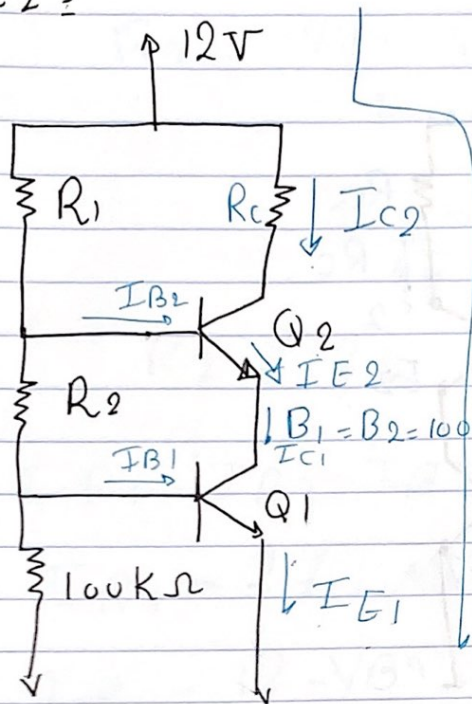 12V
R1
Rc
IC2
IB2
Q2
IE2
R2
B1 = B2 = 100
IC1
IB1
Q1
100KΩ
IE1